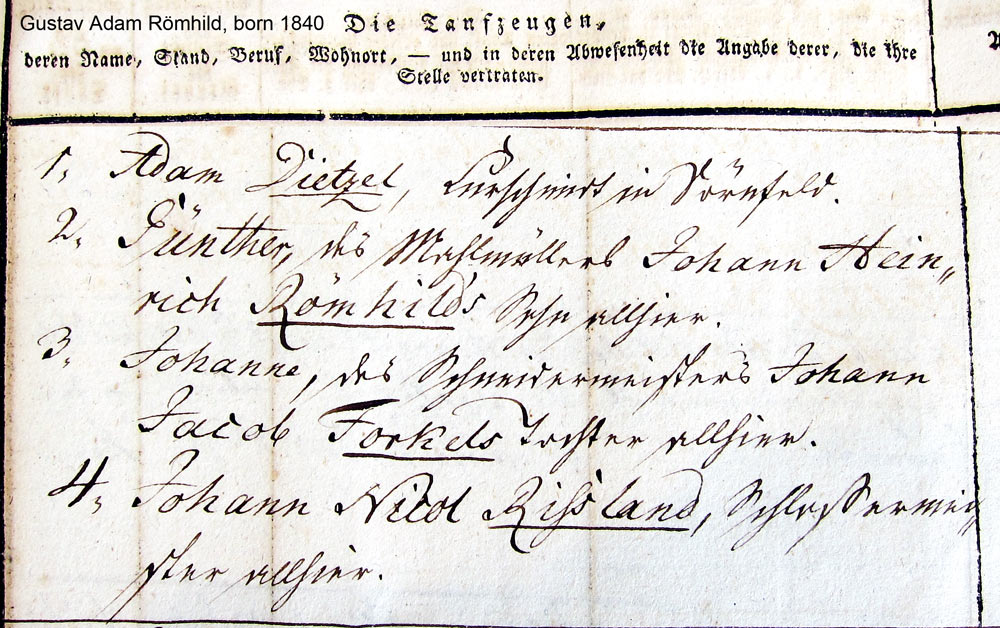 Gustav Adam Römhild, born 1840 Die Taufzeugen,
deren Name, Stand, Beruf, Wohnort, — und in deren Abwesenheit die Angabe derer, die ihre
Stelle vertraten.
1, Adam Dietzel, Curschmidt in Dörnfeld.
2, Günther, des Mahlmüllers Johann Hein„
rich Römhilds Sohn allhier.
3, Johanne, des Schneidermeisters Johann
Jacob Forkels Tochter allhier.
4, Johann Nicol Rißland, Schlossermei„
ster allhier.